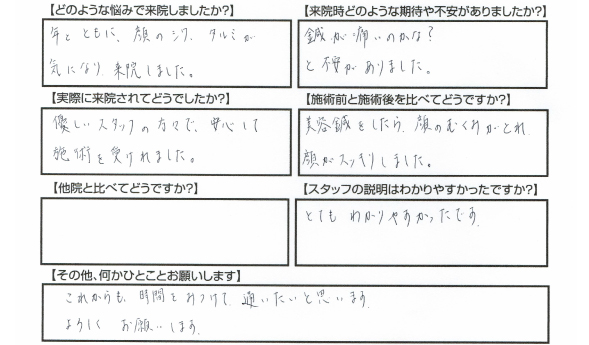 【どのような悩みで来院しましたか?】
年とともに、顔のシワ、タルミが
気になり、来院しました。
【来院時どのような期待や不安がありましたか?】
鍼が痛いのかな?
と不安がありました。
【実際に来院されてどうでしたか?】
優しいスタッフの方々で、安心して
施術を受けれました。
【施術前と施術後を比べてどうですか?】
美容鍼をしたら、顔のむくみがとれ、
顔がスッキリしました。
【他院と比べてどうですか?】
【スタッフの説明はわかりやすかったですか?】
とてもわかりやすかったです。
【その他、何かひとことお願いします】
これからも、時間をみつけて、通いたいと思います。
よろしくお願いします。